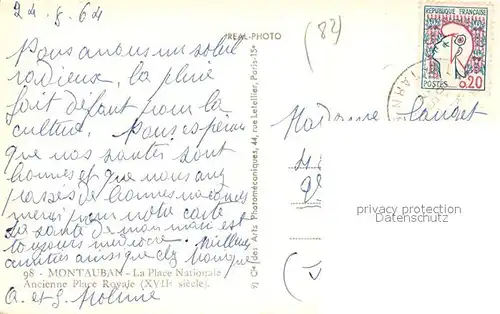 24_8_64
REAL-PHOTO
(82)
RÉPUBLIQUE FRANÇAISE
POSTES 0,20
TARN
Nous avons un soleil
radieux, la pluie
fait défaut pour la
culture. Nous espérons
que vos santés sont
bonnes et que vous avez
passés de bonnes vacances
merci pour votre carte
La santé de mon mari est
toujours médiocre. Meilleures
amitiés ainsi que chez
98 - MONTAUBAN - La Place Nationale
Ancienne Place Royale (XVIIe siècle).
A. et G.
Cie des Arts Photomécaniques, 44, rue Letellier, Paris-15e
Madame
privacy protection
Datenschutz